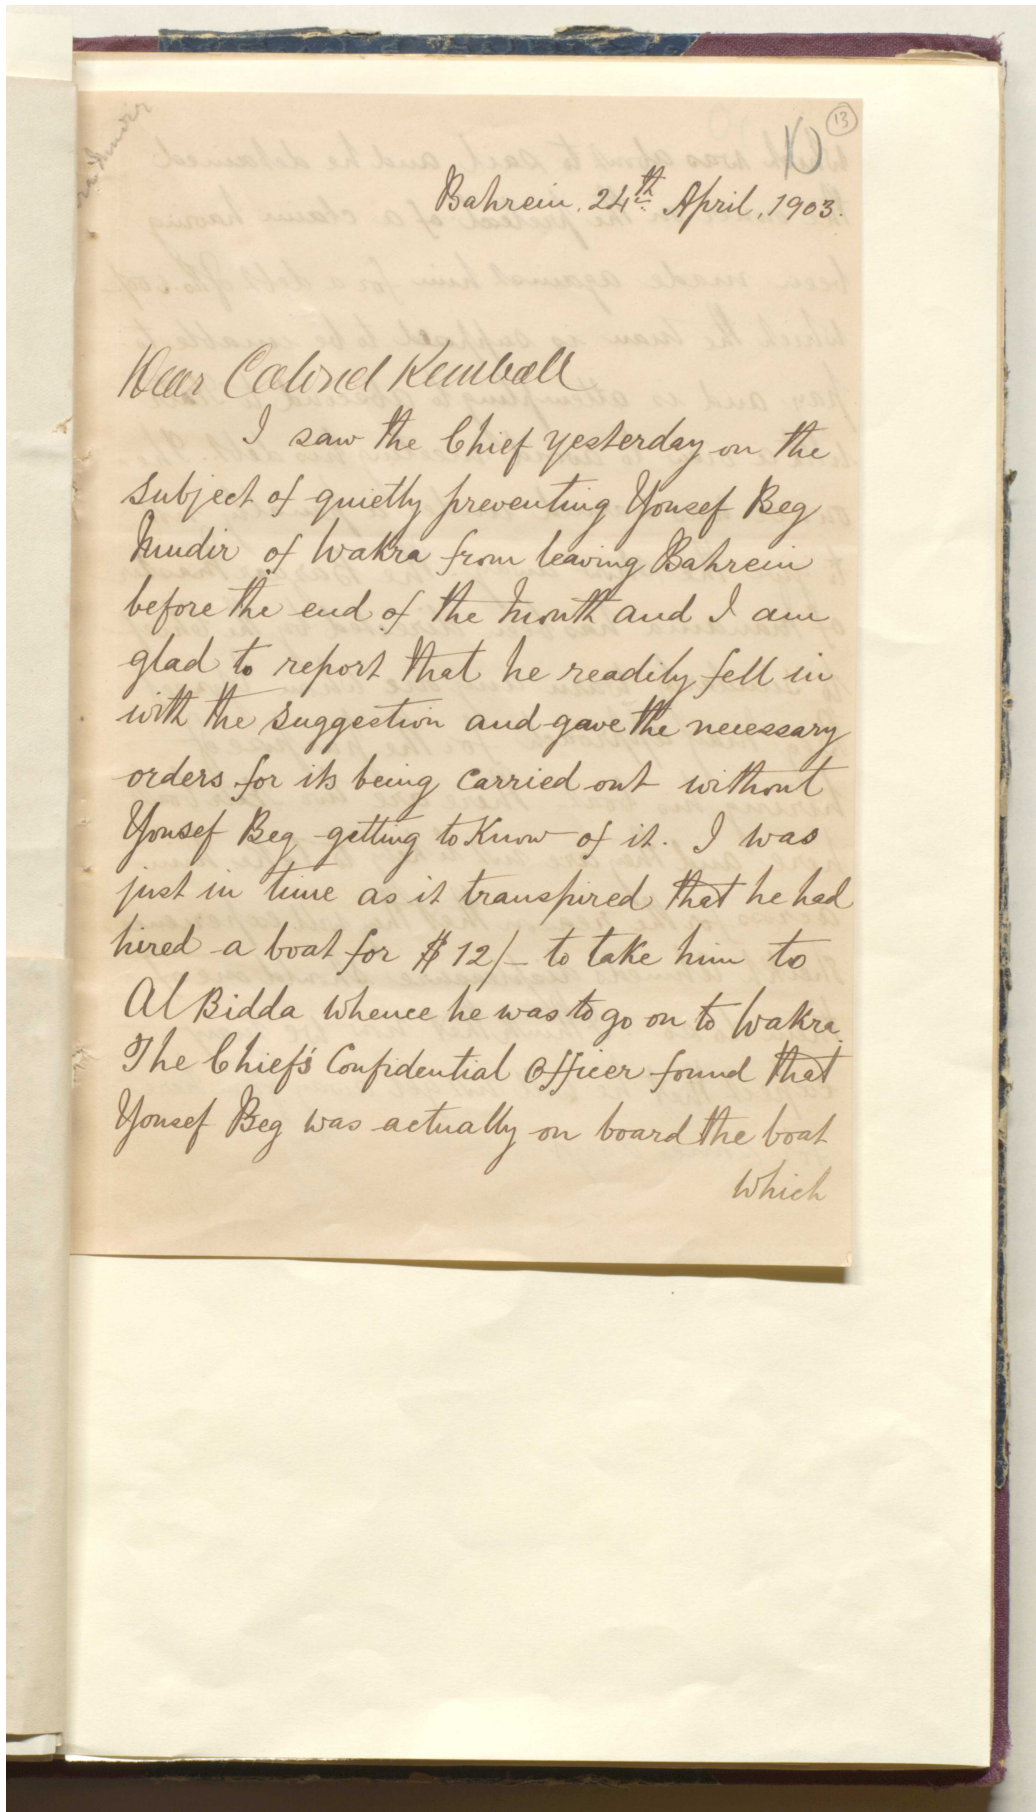 13
Bahrein, 24th April, 1903.
Dear Colonel Kemball
I saw the Chief yesterday on the
subject of quietly preventing Yousef Beg
Mudir of Wakra from leaving Bahrein
before the end of the month and I am
glad to report that he readily fell in
with the suggestion and gave the necessary
orders for its being carried out without
Yousef Beg getting to know of it. I was
just in time as it transpired that he had
hired a boat for $12/- to take him to
Al Bidda whence he was to go on to Wakra.
The Chief's Confidential Officer found that
Yousef Beg was actually on board the boat
which